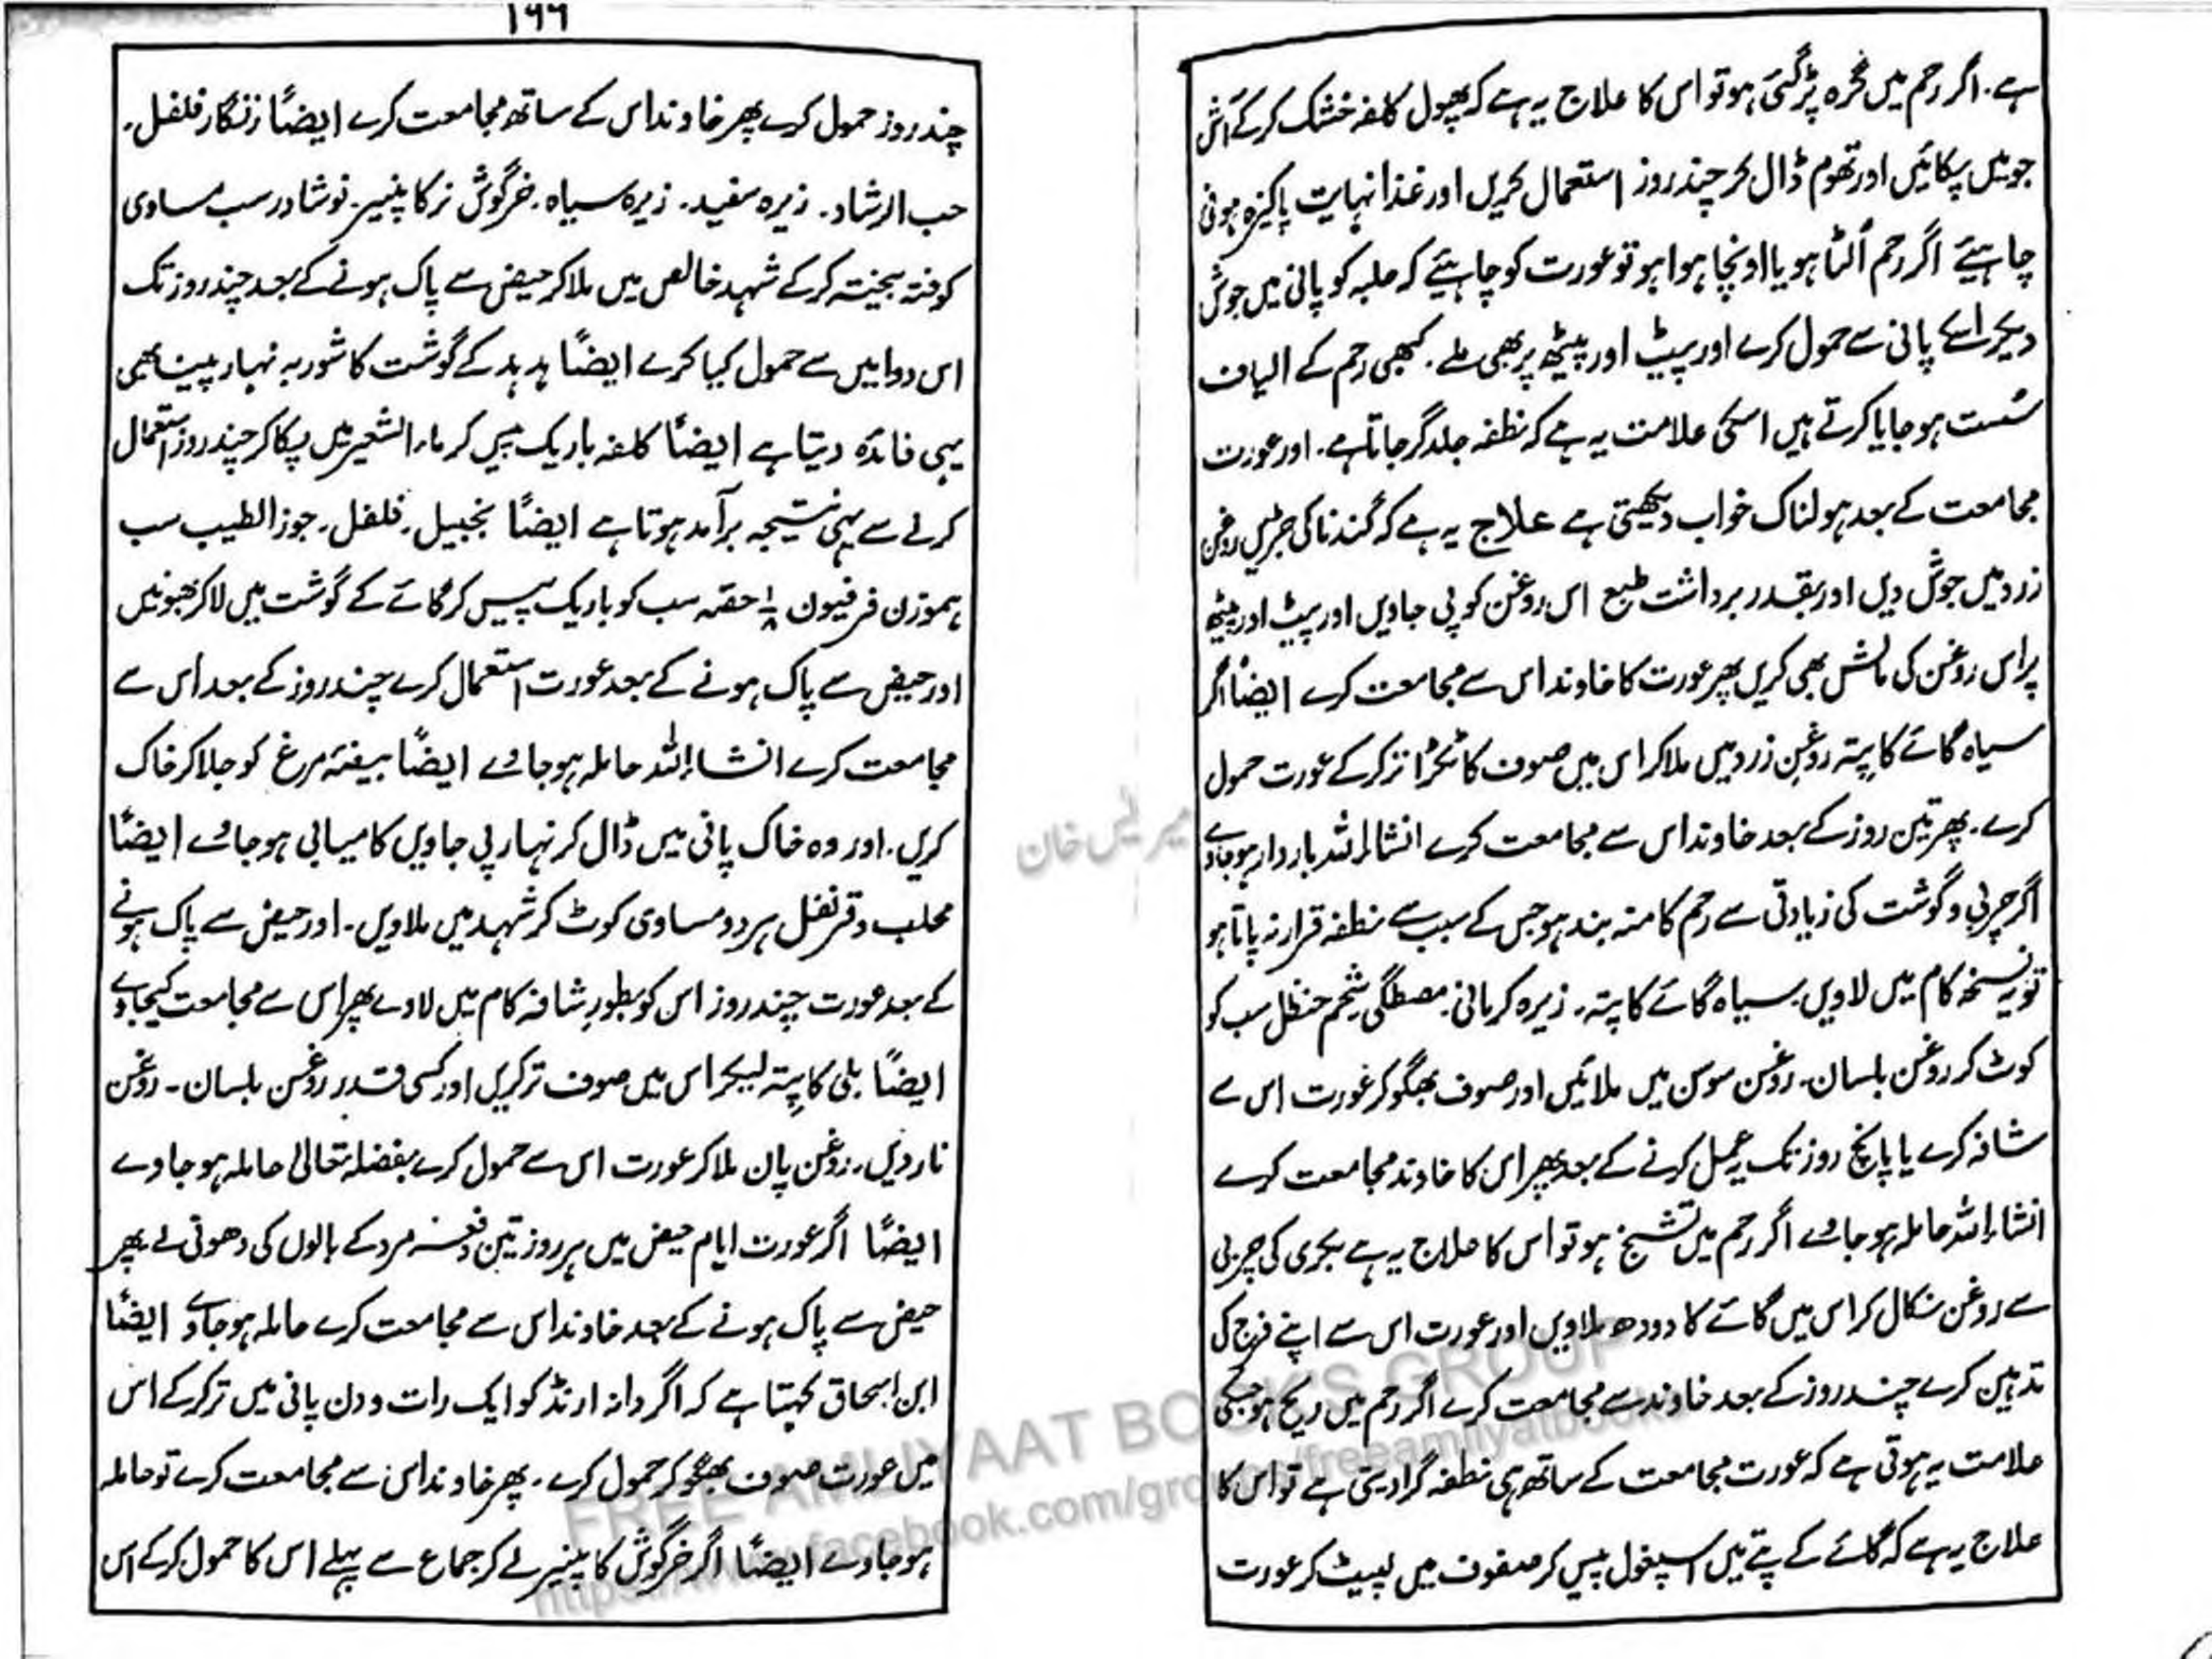 ہے۔ اگر رحم میں نحرہ پڑ گئی ہو تو اس کا علاج یہ ہے کہ پھول کلفہ خشک کر کے آش
جو میں پکائیں اور تھوم ڈال کر چند روز استعمال کریں اور غذا نہایت پاکیزہ ہونی
چاہیئے اگر رحم اُلٹا ہو یا اونچا ہوا ہو تو عورت کو چاہیئے کہ حلبہ کو پانی میں جوش
دیکر اسکے پانی سے حمول کرے اور پیٹ اور پیٹھ پر بھی ملے۔ کبھی رحم کے الیاف
سُست ہو جایا کرتے ہیں اسکی علامت یہ ہے کہ نطفہ جلد گر جاتا ہے۔ اور عورت
مجامعت کے بعد ہولناک خواب دیکھتی ہے علاج یہ ہے کہ گندنا کی جڑیں روغن
زرد میں جوش دیں اور بقدر برداشت طبع اس روغن کو پی جاویں اور پیٹ اور پیٹھ
پر اس روغن کی مالش بھی کریں پھر عورت کا خاوند اس سے مجامعت کرے ایضاً اگر
سیاہ گائے کا پتہ روغن زرد میں ملا کر اس میں صوف کا ٹکڑا تر کر کے عورت حمول
کرے۔ پھر تین روز کے بعد خاوند اس سے مجامعت کرے انشاءاللہ باردار ہو جاوے
اگر چربی و گوشت کی زیادتی سے رحم کا منہ بند ہو جس کے سبب سے نطفہ قرار نہ پاتا ہو
تو یہ نسخہ کام میں لاویں۔ سیاہ گائے کا پتہ۔ زیرہ کرمانی۔ مصطگی شحم حنظل سب کو
کوٹ کر روغن بلسان۔ روغن سوسن میں ملائیں اور صوف بھگو کر عورت اس سے
شافہ کرے یا پانچ روز تک یہ عمل کرنے کے بعد پھر اس کا خاوند مجامعت کرے
انشاءاللہ حاملہ ہو جاوے اگر رحم میں تشنج ہو تو اس کا علاج یہ ہے بکری کی چربی
سے روغن نکال کر اس میں گائے کا دودھ ملاویں اور عورت اس سے اپنے فرج کی
تدہین کرے چند روز کے بعد خاوند سے مجامعت کرے اگر رحم میں ریح ہو جسکی
علامت یہ ہوتی ہے کہ عورت مجامعت کے ساتھ ہی نطفہ گرا دیتی ہے تو اس کا
علاج یہ ہے کہ گائے کے پتے میں اسپغول پیس کر صفوف میں لپیٹ کر عورت
۱۶۶
چند روز حمول کرے پھر خاوند اس کے ساتھ مجامعت کرے ایضاً زنگار فلفل۔
حب الرشاد۔ زیرہ سفید۔ زیرہ سیاہ۔ خرگوش نر کا پنیر۔ نوشادر سب مساوی
کوفتہ بیختہ کر کے شہد خالص میں ملا کر حیض سے پاک ہونے کے بعد چند روز تک
اس دوا میں سے حمول کیا کرے ایضاً ہدہد کے گوشت کا شوربہ نہار پینا بھی
یہی فائدہ دیتا ہے ایضاً کلفہ باریک پیس کر ماء الشعیر میں پکا کر چند روز استعمال
کرنے سے یہی نتیجہ برآمد ہوتا ہے ایضاً نجبیل۔ فلفل۔ جوز الطیب سب
ہموزن فرفیون ⅛ حصہ سب کو باریک پیس کر گائے کے گوشت میں لا کر بھونیں
اور حیض سے پاک ہونے کے بعد عورت استعمال کرے چند روز کے بعد اس سے
مجامعت کرے انشاءاللہ حاملہ ہو جاوے ایضاً بیضۂ مرغ کو جلا کر خاک
کریں۔ اور وہ خاک پانی میں ڈال کر نہار پی جاویں کامیابی ہو جاوے ایضاً
محلب و قرنفل ہر دو مساوی کوٹ کر شہد میں ملاویں۔ اور حیض سے پاک ہونے
کے بعد عورت چند روز اس کو بطور شافہ کام میں لاوے پھر اس سے مجامعت کیجاوے
ایضاً بلی کا پتہ لیکر اس میں صوف تر کریں اور کسی قدر روغن بلسان۔ روغن
ناردیں۔ روغن پان ملا کر عورت اس سے حمول کرے بفضلہ تعالیٰ حاملہ ہو جاوے
ایضاً اگر عورت ایام حیض میں ہر روز تین دفعہ مرد کے بالوں کی دھونی لے پھر
حیض سے پاک ہونے کے بعد خاوند اس سے مجامعت کرے حاملہ ہو جاوے ایضاً
ابن اسحاق کہتا ہے کہ اگر دانہ ارنڈ کو ایک رات و دن پانی میں تر کر کے اس
میں عورت صوف بھگو کر حمول کرے۔ پھر خاوند اس سے مجامعت کرے تو حاملہ
ہو جاوے ایضاً اگر خرگوش کا پنیر لے کر جماع سے پہلے اس کا حمول کر کے اس
FREE AMLIYAAT BOOKS GROUP
https://www.facebook.com/groups/freeamliyatbooks